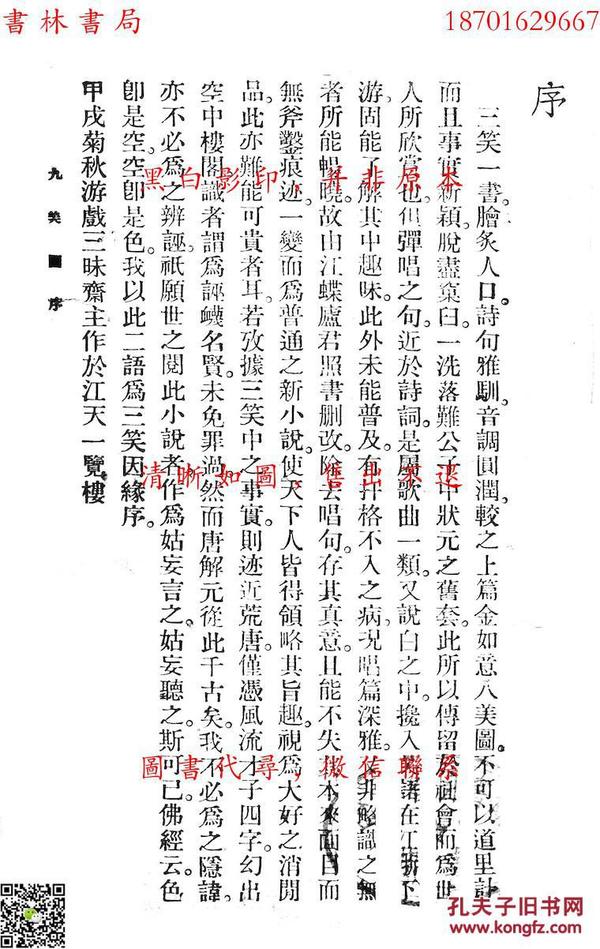 書林書局
18701629667
序
三笑一書。膾炙人口。詩句雅馴。音調圓潤。較之上篇金如意八美圖。不可以道里計
而且事實新穎。脫盡窠臼。一洗落難公子中狀元之舊套。此所以傳留於社會而為世
人所欣賞也。但彈唱之句近於詩詞。是屬歌曲一類。又說白之中攙入
語在江浙下
游固能了解其中趣味。此外未能普及。有扞格不入之病。況唱篇深雅。又非略識之無
者所能暢曉。故由江蝶廬君照書删改。除去唱句。存其真意。且能不失其本來面目而
無斧鑿痕迹。一變而為普通之新小說。使天下人皆得領略其旨趣。視為大好之消閒
品。此亦難能可貴者耳。若攷據三笑中之事實。則迹近荒唐。僅憑風流才子四字幻出
空中樓閣。識者謂為誣衊名賢。未免罪過。然而唐解元從此千古矣。我不必為之隱諱。
亦不必為之辨誣。祇願世之閱此小說者作為姑妄言之。姑妄聽之。斯可已。佛經云。色
卽是空。空卽是色。我以此二語為三笑因緣序。
甲戌菊秋游戲三昧齋主作於江天一覽樓
九笑圖序
黑白影印，并非原本
清晰如圖，售出不退
圖書代尋，微信聯系
孔夫子旧书网
www.kongfz.com